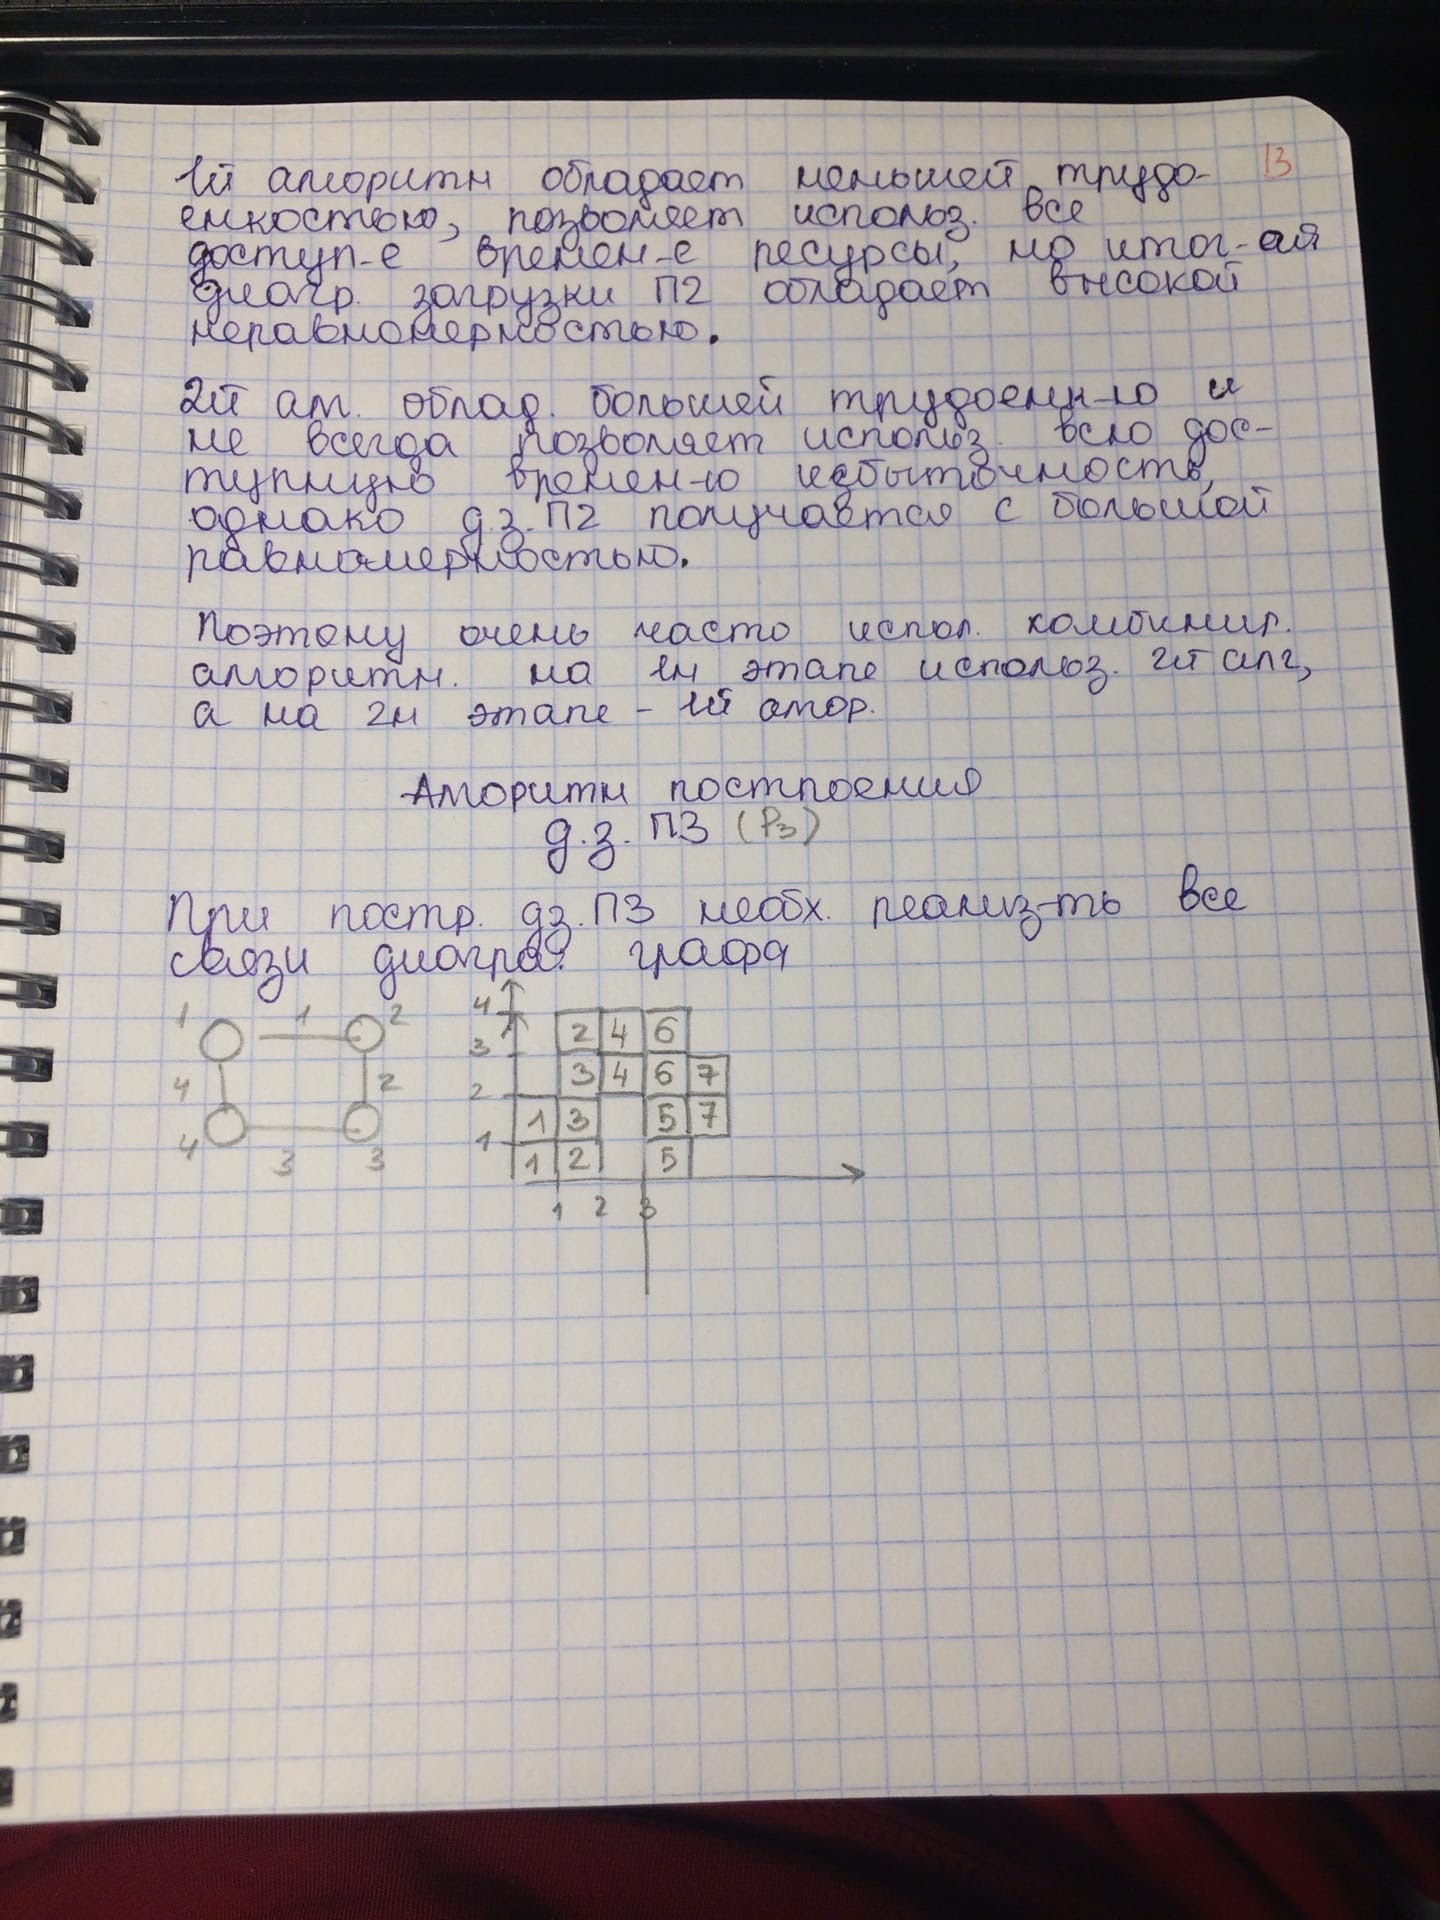 13
1й алгоритм обладает меньшей трудо-
емкостью, позволяет использ. все
доступ-е времен-е ресурсы, но итог-ая
диагр. загрузки П2 обладает высокой
неравномерностью.
2й ал. облад. большей трудоемк-ю и
не всегда позволяет использ. всю дос-
тупную времен-ю избыточность,
однако д.з. П2 получается с большой
равномерностью.
Поэтому очень часто испол. комбинир.
алгоритм. на 1м этапе использ. 2й алг,
а на 2м этапе - 1й алгор.
Алгоритм построения
д.з. П3 (Р3)
При постр. дз. П3 необх. реализ-ть все
связи диагра. графа
1 1 2
4 2
4 3 3
4
3 2 4 6
2 3 4 6 7
1 1 3 5 7
1 2 5
1 2 3